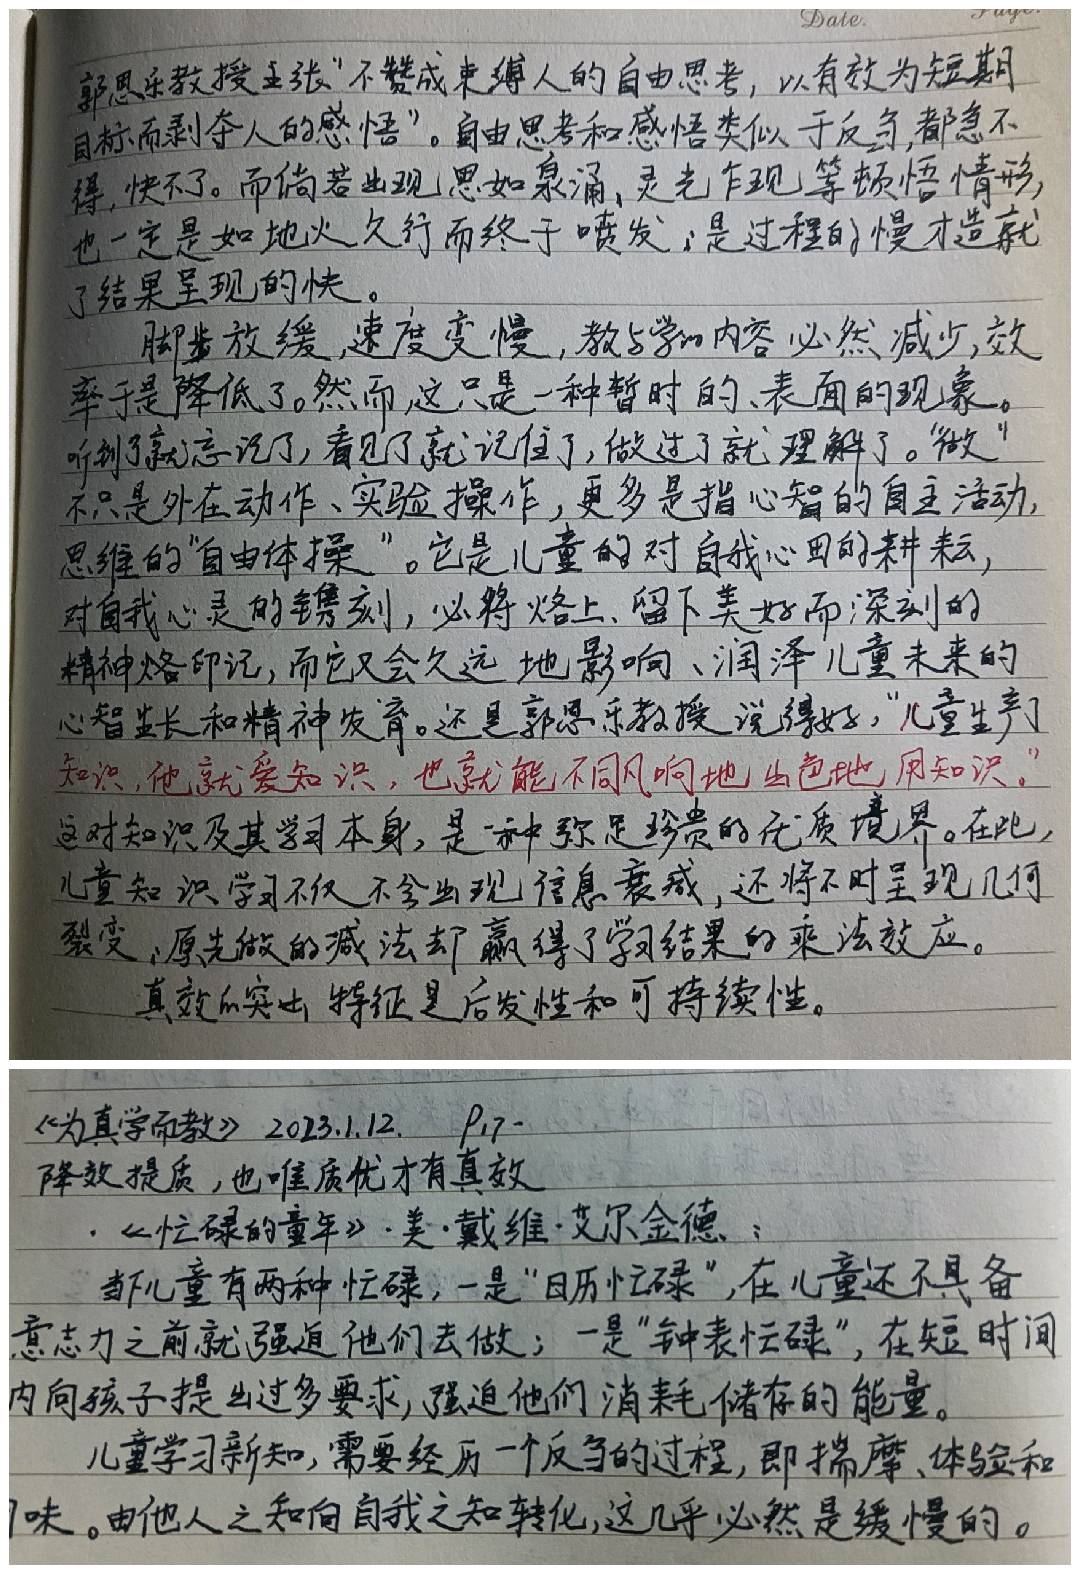 Date.
Page.
郭思乐教授主张“不赞成束缚人的自由思考，以有效为短期
目标而剥夺人的感悟”。自由思考和感悟类似于反刍，都急不
得，快不了。而倘若出现思如泉涌、灵光乍现等顿悟情形，
也一定是如地火久行而终于喷发；是过程的慢才造就
了结果呈现的快。
脚步放缓，速度变慢，教与学的内容必然减少，效
率于是降低了。然而，这只是一种暂时的、表面的现象。
听到了就忘记了，看见了就记住了，做过了就理解了。“做”
不只是外在动作、实验操作，更多是指心智的自主活动，
思维的“自由体操”。它是儿童的对自我心田的耕耘，
对自我心灵的镌刻，必将烙上、留下美好而深刻的
精神烙印记，而它又会久远地影响、润泽儿童未来的
心智生长和精神发育。还是郭思乐教授说得好，“儿童生产
知识，他就爱知识，也就能不同凡响地出色地用知识。”
这对知识及其学习本身，是一种弥足珍贵的优质境界。在此，
儿童知识学习不仅不会出现信息衰减，还将不时呈现几何
裂变，原先做的减法却赢得了学习结果的乘法效应。
真效的突出特征是后发性和可持续性。
《为真学而教》 2023.1.12. P17-
降效提质，也唯质优才有真效
·《忙碌的童年》·美·戴维·艾尔金德：
当下儿童有两种忙碌，一是“日历忙碌”，在儿童还不具备
意志力之前就强迫他们去做；一是“钟表忙碌”，在短时间
内向孩子提出过多要求，强迫他们消耗储存的能量。
儿童学习新知，需要经历一个反刍的过程，即揣摩、体验和
味。由他人之知向自我之知转化，这几乎必然是缓慢的。